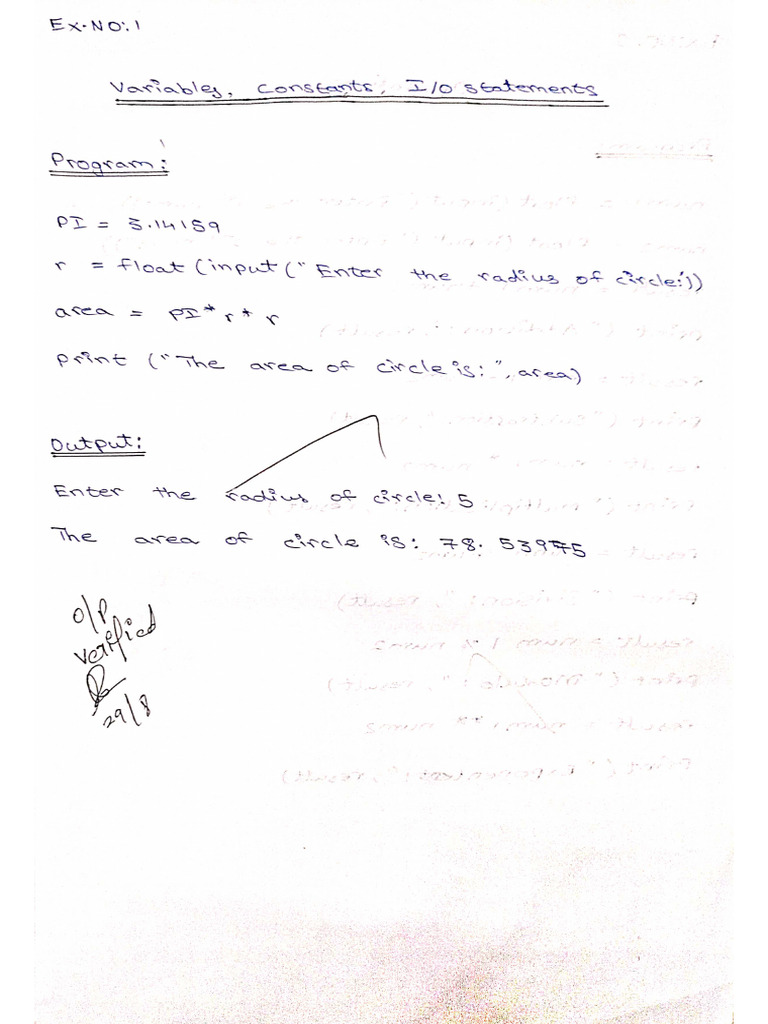 Ex.NO:1
Variables, Constants, I/O statements
Program:
PI = 3.14159
r = float (input ("Enter the radius of circle:"))
area = PI * r * r
print ("The area of circle is:", area)
Output:
Enter the radius of circle: 5
The area of circle is: 78.53975
O/P
verified
29/8